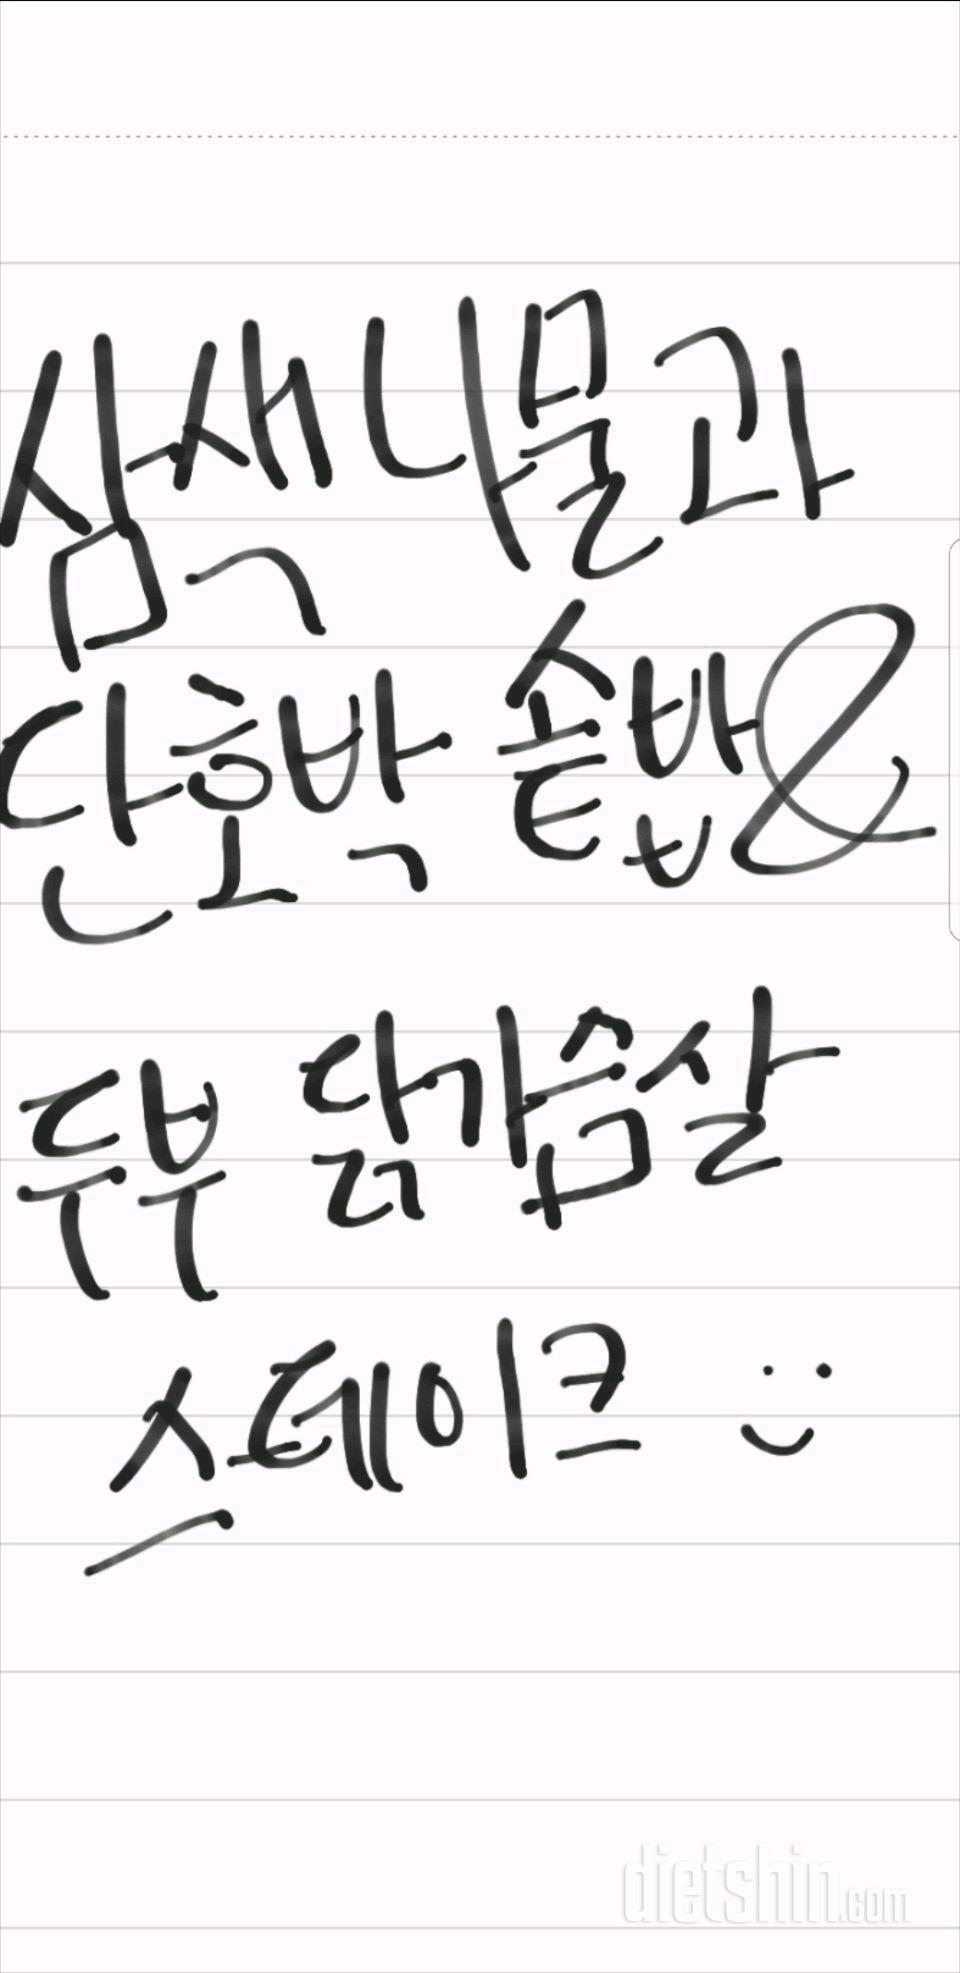 삼색나물과
단호박 솥밥&
두부 닭가슴살
스테이크 :)
dietshin.com